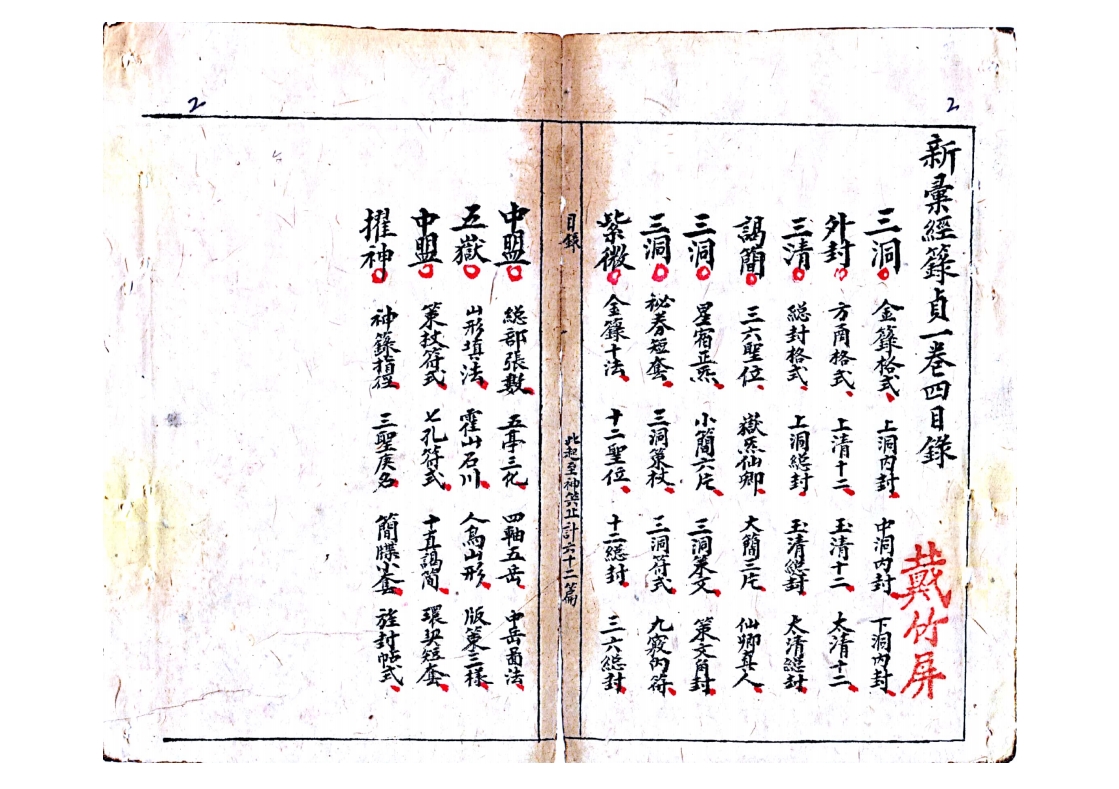 新彙經籙貞一卷四目錄
戴竹屏
三洞 金籙格式 上洞內封 中洞內封 下洞內封
外封 方甬格式 上清十二 玉清十二 太清十二
三清 總封格式 上洞總封 玉清總封 太清總封
謁簡 三六聖位 嶽炁仙卿 大簡三片 仙卿真人
三洞 星宿正炁 小簡六片 三洞策文 策文角封
三洞 祕券短套 三洞策杖 三洞符式 九竅內符
紫微 金籙十法 十二聖位 十二總封 三六總封
目錄 此起至神共止計六十二篇
中盟 總部張數 五亭三化 四軸五岳 中岳畐法
五嶽 山形填法 霍山石川 人鳥山形 版策三樣
中盟 策杖符式 七孔符式 十直謁簡 環契短套
擢神 神籙指徑 三聖戾名 簡牒小套 旌封帖式
2
2